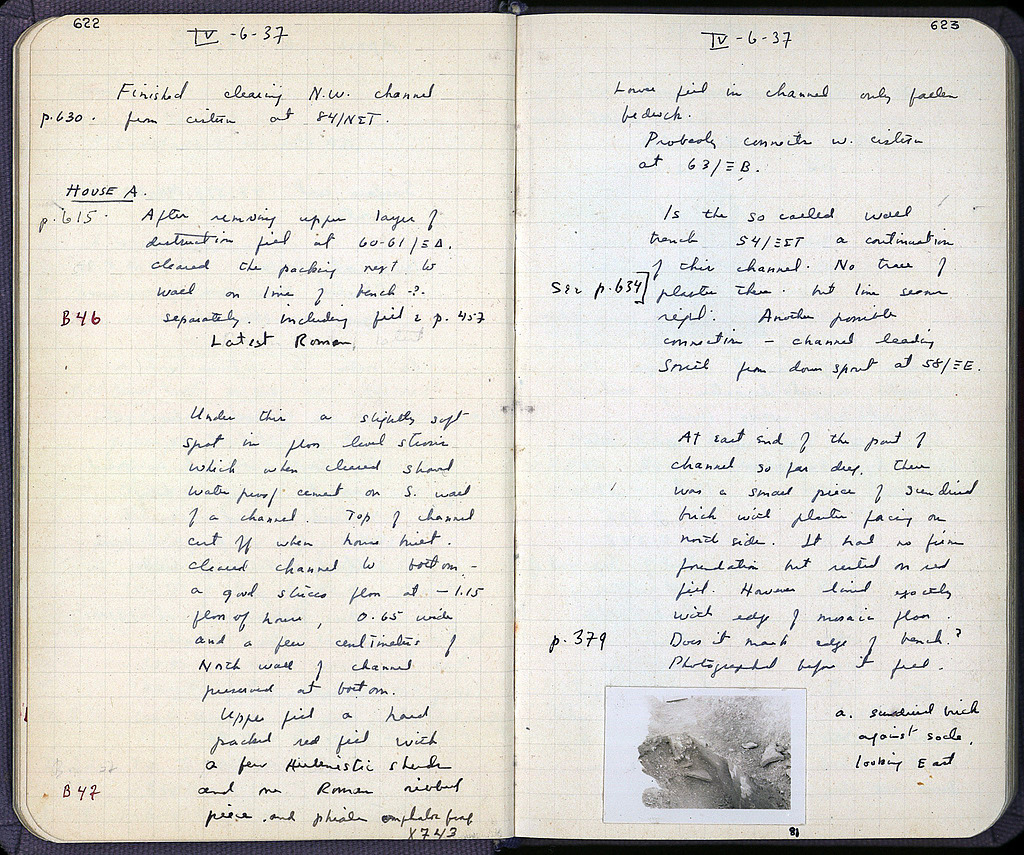 622
IV-6-37
Finished clearing N.W. channel
p.630. from cistern at 84/ΝΣΤ.
HOUSE A.
p.615. After removing upper layer of
destruction fill at 60-61/ΞΔ.
cleared the packing next to
wall on line of bench -?.
B46 separately. including fill p. 457
Latest Roman
Under this a slightly soft
spot in floor level
which when cleared showed
water proof cement on S. wall
of a channel. Top of channel
cut off when house built.
cleared channel to bottom -
a good stucco floor at -1.15
floor of house, 0.65 wide
and a few centimeters of
North wall of channel
preserved at bottom.
Upper fill a hard
packed red fill with
a few Hellenistic sherds
B47 and one Roman ribbed
piece and phiale omphalos frag
X743
623
IV-6-37
Lower fill in channel only fallen
bedrock.
Probably connects w. cistern
at 63/ΞB.
Is the so called wall
trench 54/ΞΣΤ a continuation
of this channel. No trace of
See p.634] plaster there. but line seems
right. Another possible
connection - channel leading
South from down spout at 58/ΞE.
At east end of the part of
channel so far dug, there
was a small piece of sundried
brick with plaster facing on
north side. It had no firm
foundation but rested on red
fill. However lined exactly
with edge of mosaic floor.
p.379 Does it mark edge of bench?
Photographed before it fell.
a. sundried brick
against socle,
looking East
81